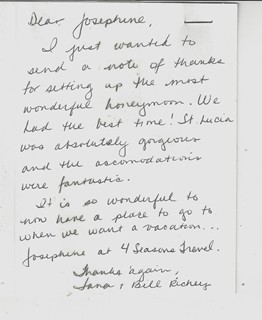 Dear Josephine,
I just wanted to
send a note of thanks
for setting up the most
wonderful honeymoon. We
had the best time! St. Lucia
was absolutely gorgeous
and the accomodations
were fantastic.
It is so wonderful to
now have a place to go to
when we want a vacation...
Josephine at 4 Seasons Travel.
Thanks again,
Lana & Bill Richey